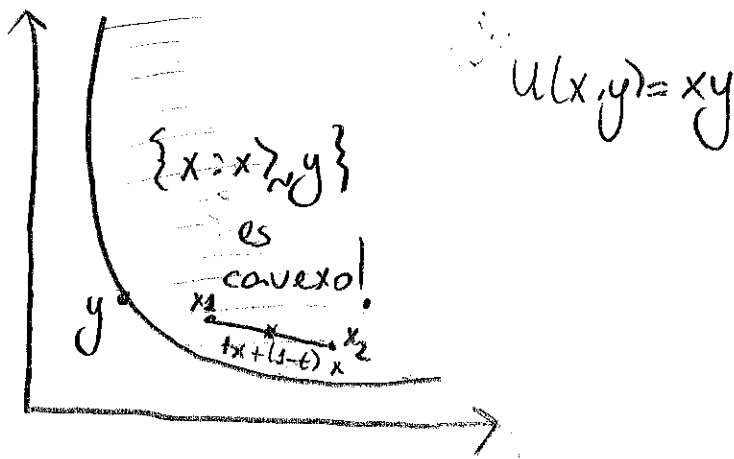 U(x,y)=xy
{x:x≿y}
es
convexo!
y
x1
x2
tx+(1-t)x